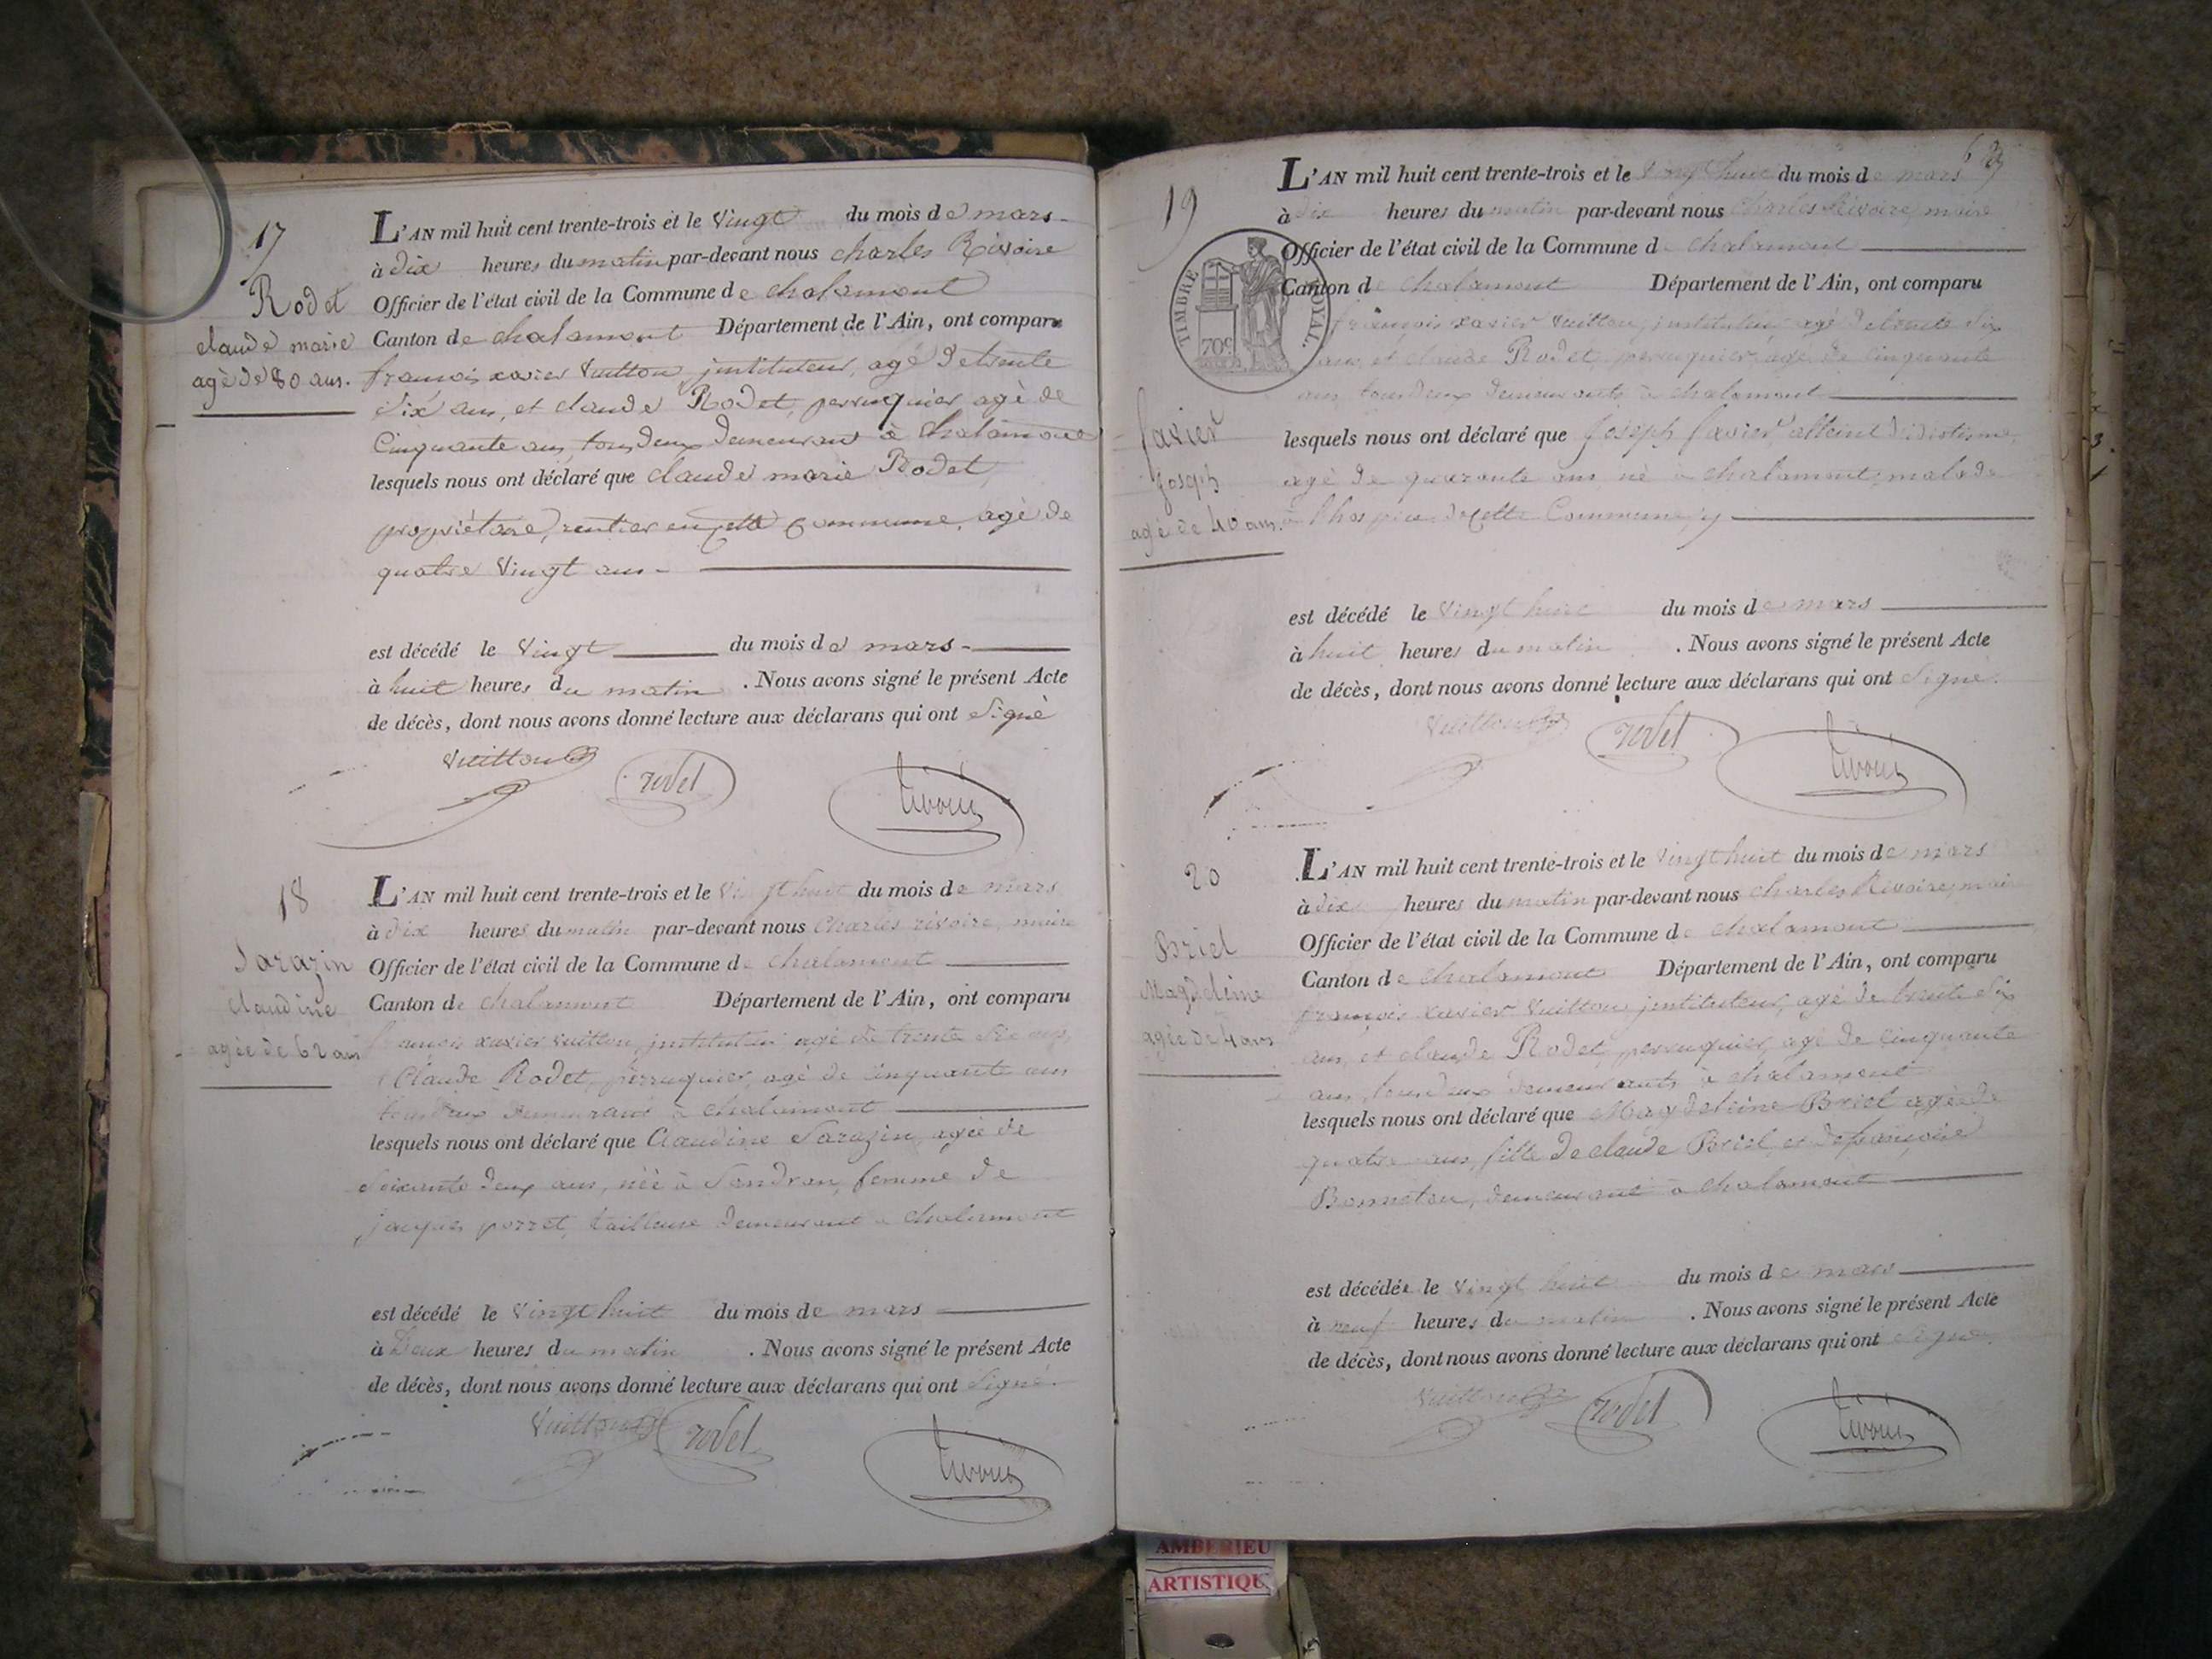 17
Rodet
claude marie
agé de 80 ans.
L'AN mil huit cent trente-trois et le Vingt du mois de mars
à dix heures du matin par-devant nous charles Rivoire
Officier de l'état civil de la Commune de chalamont
Canton de chalamont Département de l'Ain, ont comparu
francois xavier Vuitton, jnstituteur, agé de trente
Six ans, et claude Rodet, perruquier, agé de
Cinquante ans, tous deux demeurant à Chalamont
lesquels nous ont déclaré que claude marie Rodet,
propriétaire, rentier en cette Commune, agé de
quatre Vingt ans
est décédé le Vingt du mois de mars
à huit heures du matin . Nous avons signé le présent Acte
de décès, dont nous avons donné lecture aux déclarans qui ont Signé
Vuitton rodet rivoire
18
Sarazin
claudine
agée de 62 ans
L'AN mil huit cent trente-trois et le Vingt huit du mois de mars
à dix heures du matin par-devant nous Charles rivoire, maire
Officier de l'état civil de la Commune de Chalamont
Canton de chalamont Département de l'Ain, ont comparu
francois xavier vuitton, jnstituteur agé de trente Six ans,
et Claude Rodet, perruquier, agé de cinquante ans
tous deux demeurant à chalamont
lesquels nous ont déclaré que Claudine Sarazin, agée de
Soixante deux ans, née à Sandran, femme de
jacques perret, tailleuse demeurant à chalamont
est décédé le Vingt huit du mois de mars
à Deux heures du matin . Nous avons signé le présent Acte
de décès, dont nous avons donné lecture aux déclarans qui ont Signé.
Vuitton rodet rivoire
19
TIMBRE ROYAL.
70c
favier
joseph
agé de 40 ans.
L'AN mil huit cent trente-trois et le Vingt huit du mois de mars
à dix heures du matin par-devant nous Charles Rivoire, maire
Officier de l'état civil de la Commune de Chalamont
Canton de Chalamont Département de l'Ain, ont comparu
françois xavier Vuitton, jnstituteur agé de trente Six
ans, et claude Rodet, perruquier, agé de cinquante
ans, tous deux demeurants à chalamont
lesquels nous ont déclaré que joseph favier, atteint d'idiotisme,
agé de quarante ans né à chalamont, malade
à l'hospice de cette Commune, y
est décédé le Vingt huit du mois de mars
à huit heures du matin . Nous avons signé le présent Acte
de décès, dont nous avons donné lecture aux déclarans qui ont Signé.
Vuitton rodet rivoire
20
Briel
Magdeleine
agée de 4 ans
L'AN mil huit cent trente-trois et le Vingt huit du mois de mars
à dix heures du matin par-devant nous charles Rivoire, maire
Officier de l'état civil de la Commune de chalamont
Canton de chalamont Département de l'Ain, ont comparu
françois xavier Vuitton, jnstituteur, agé de trente Six
ans, et claude Rodet, perruquier, agé de cinquante
ans, tous deux demeurants à chalamont
lesquels nous ont déclaré que Magdeleine Briel agée de
quatre ans, fille de claude Briel, et de françoise
Bonneton, demeurant à chalamont
est décédée le Vingt huit du mois de mars
à neuf heures du matin . Nous avons signé le présent Acte
de décès, dont nous avons donné lecture aux déclarans qui ont signé
Vuitton rodet rivoire
AMBERIEU
ARTISTIQU